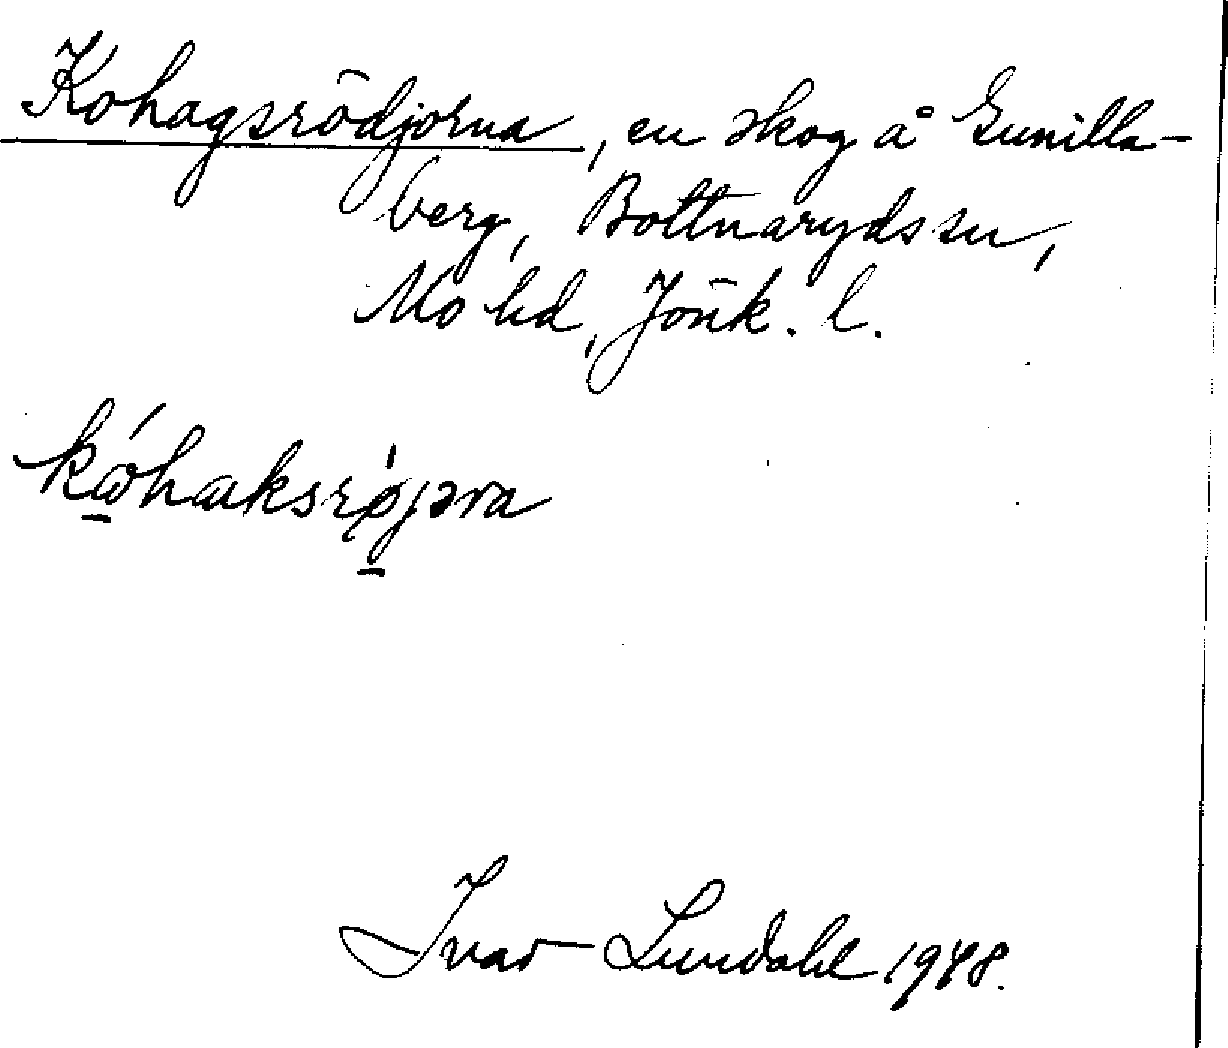 Kohagsrödjorna, en skog å Gunilla-
berg, Bottnaryds sn,
Mo hd, Jönk. l.
kɷ́haksrø̀jəra
Ivar Lundahl 1948.